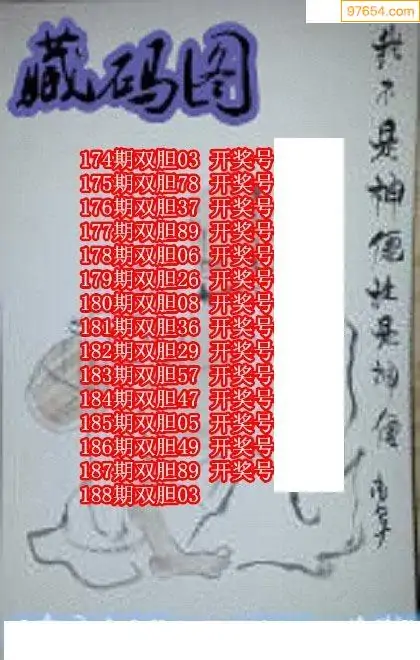 97654.com
藏码图
174期双胆03 开奖号
175期双胆78 开奖号
176期双胆37 开奖号
177期双胆89 开奖号
178期双胆06 开奖号
179期双胆26 开奖号
180期双胆08 开奖号
181期双胆36 开奖号
182期双胆29 开奖号
183期双胆57 开奖号
184期双胆47 开奖号
185期双胆05 开奖号
186期双胆49 开奖号
187期双胆89 开奖号
188期双胆03
我不是神仙谁是神仙